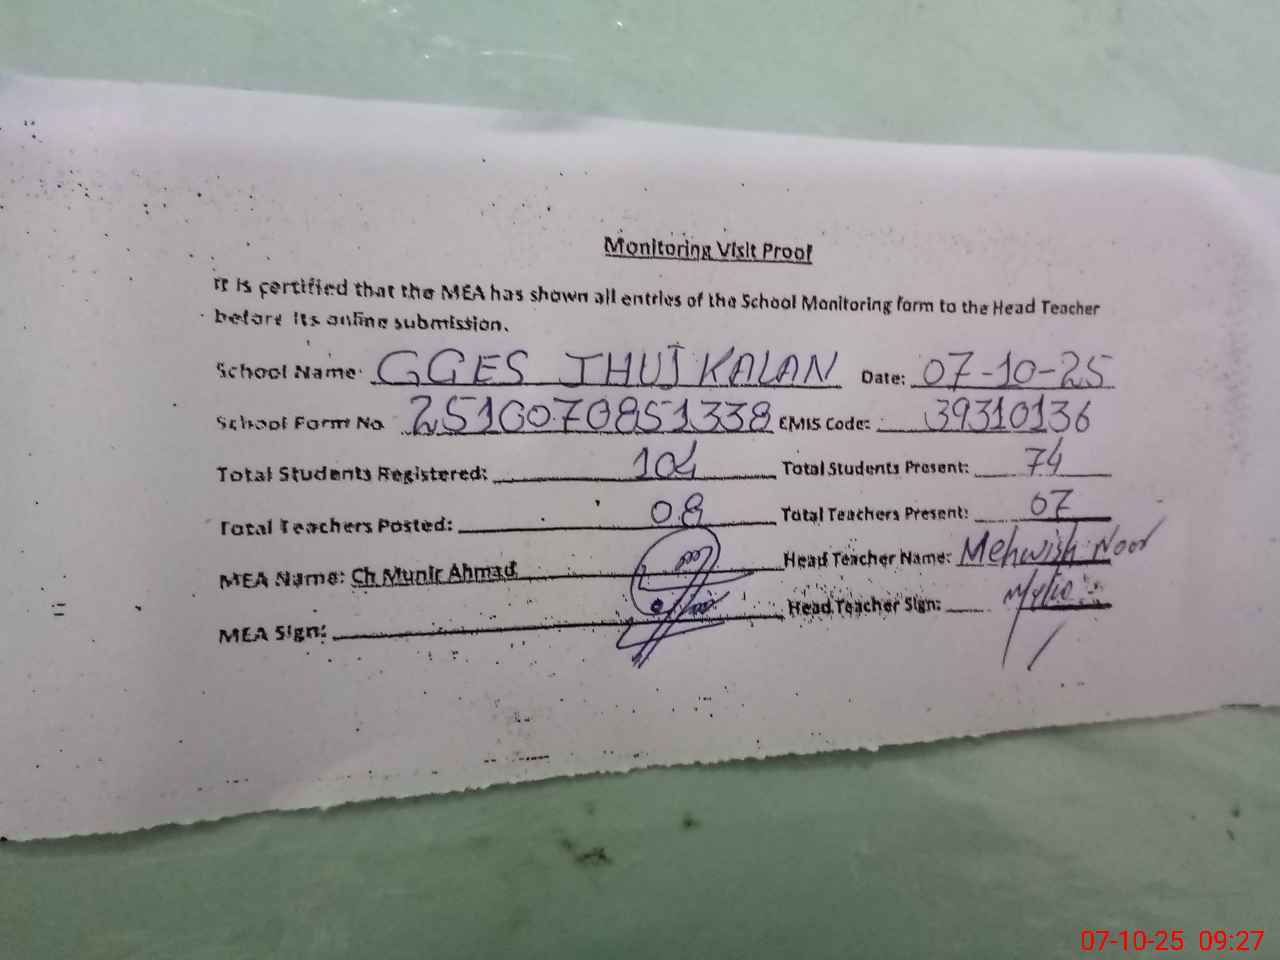 Monitoring Visit Proof
It is certified that the MEA has shown all entries of the School Monitoring form to the Head Teacher
before its online submission.
School Name: GGES JHUJKALAN Date: 07-10-25
School Form No 2510070851338 EMIS Code: 39310136
Total Students Registered: 104 Total Students Present: 74
Total Teachers Posted: 08 Total Teachers Present: 07
MEA Name: Ch Munir Ahmad Head Teacher Name: Mehwish Noor
MEA Sign: Head Teacher Sign:
07-10-25 09:27